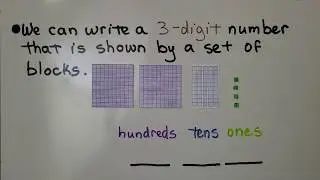 •We can write a 3-digit number
that is shown by a set of
blocks.
hundreds tens ones